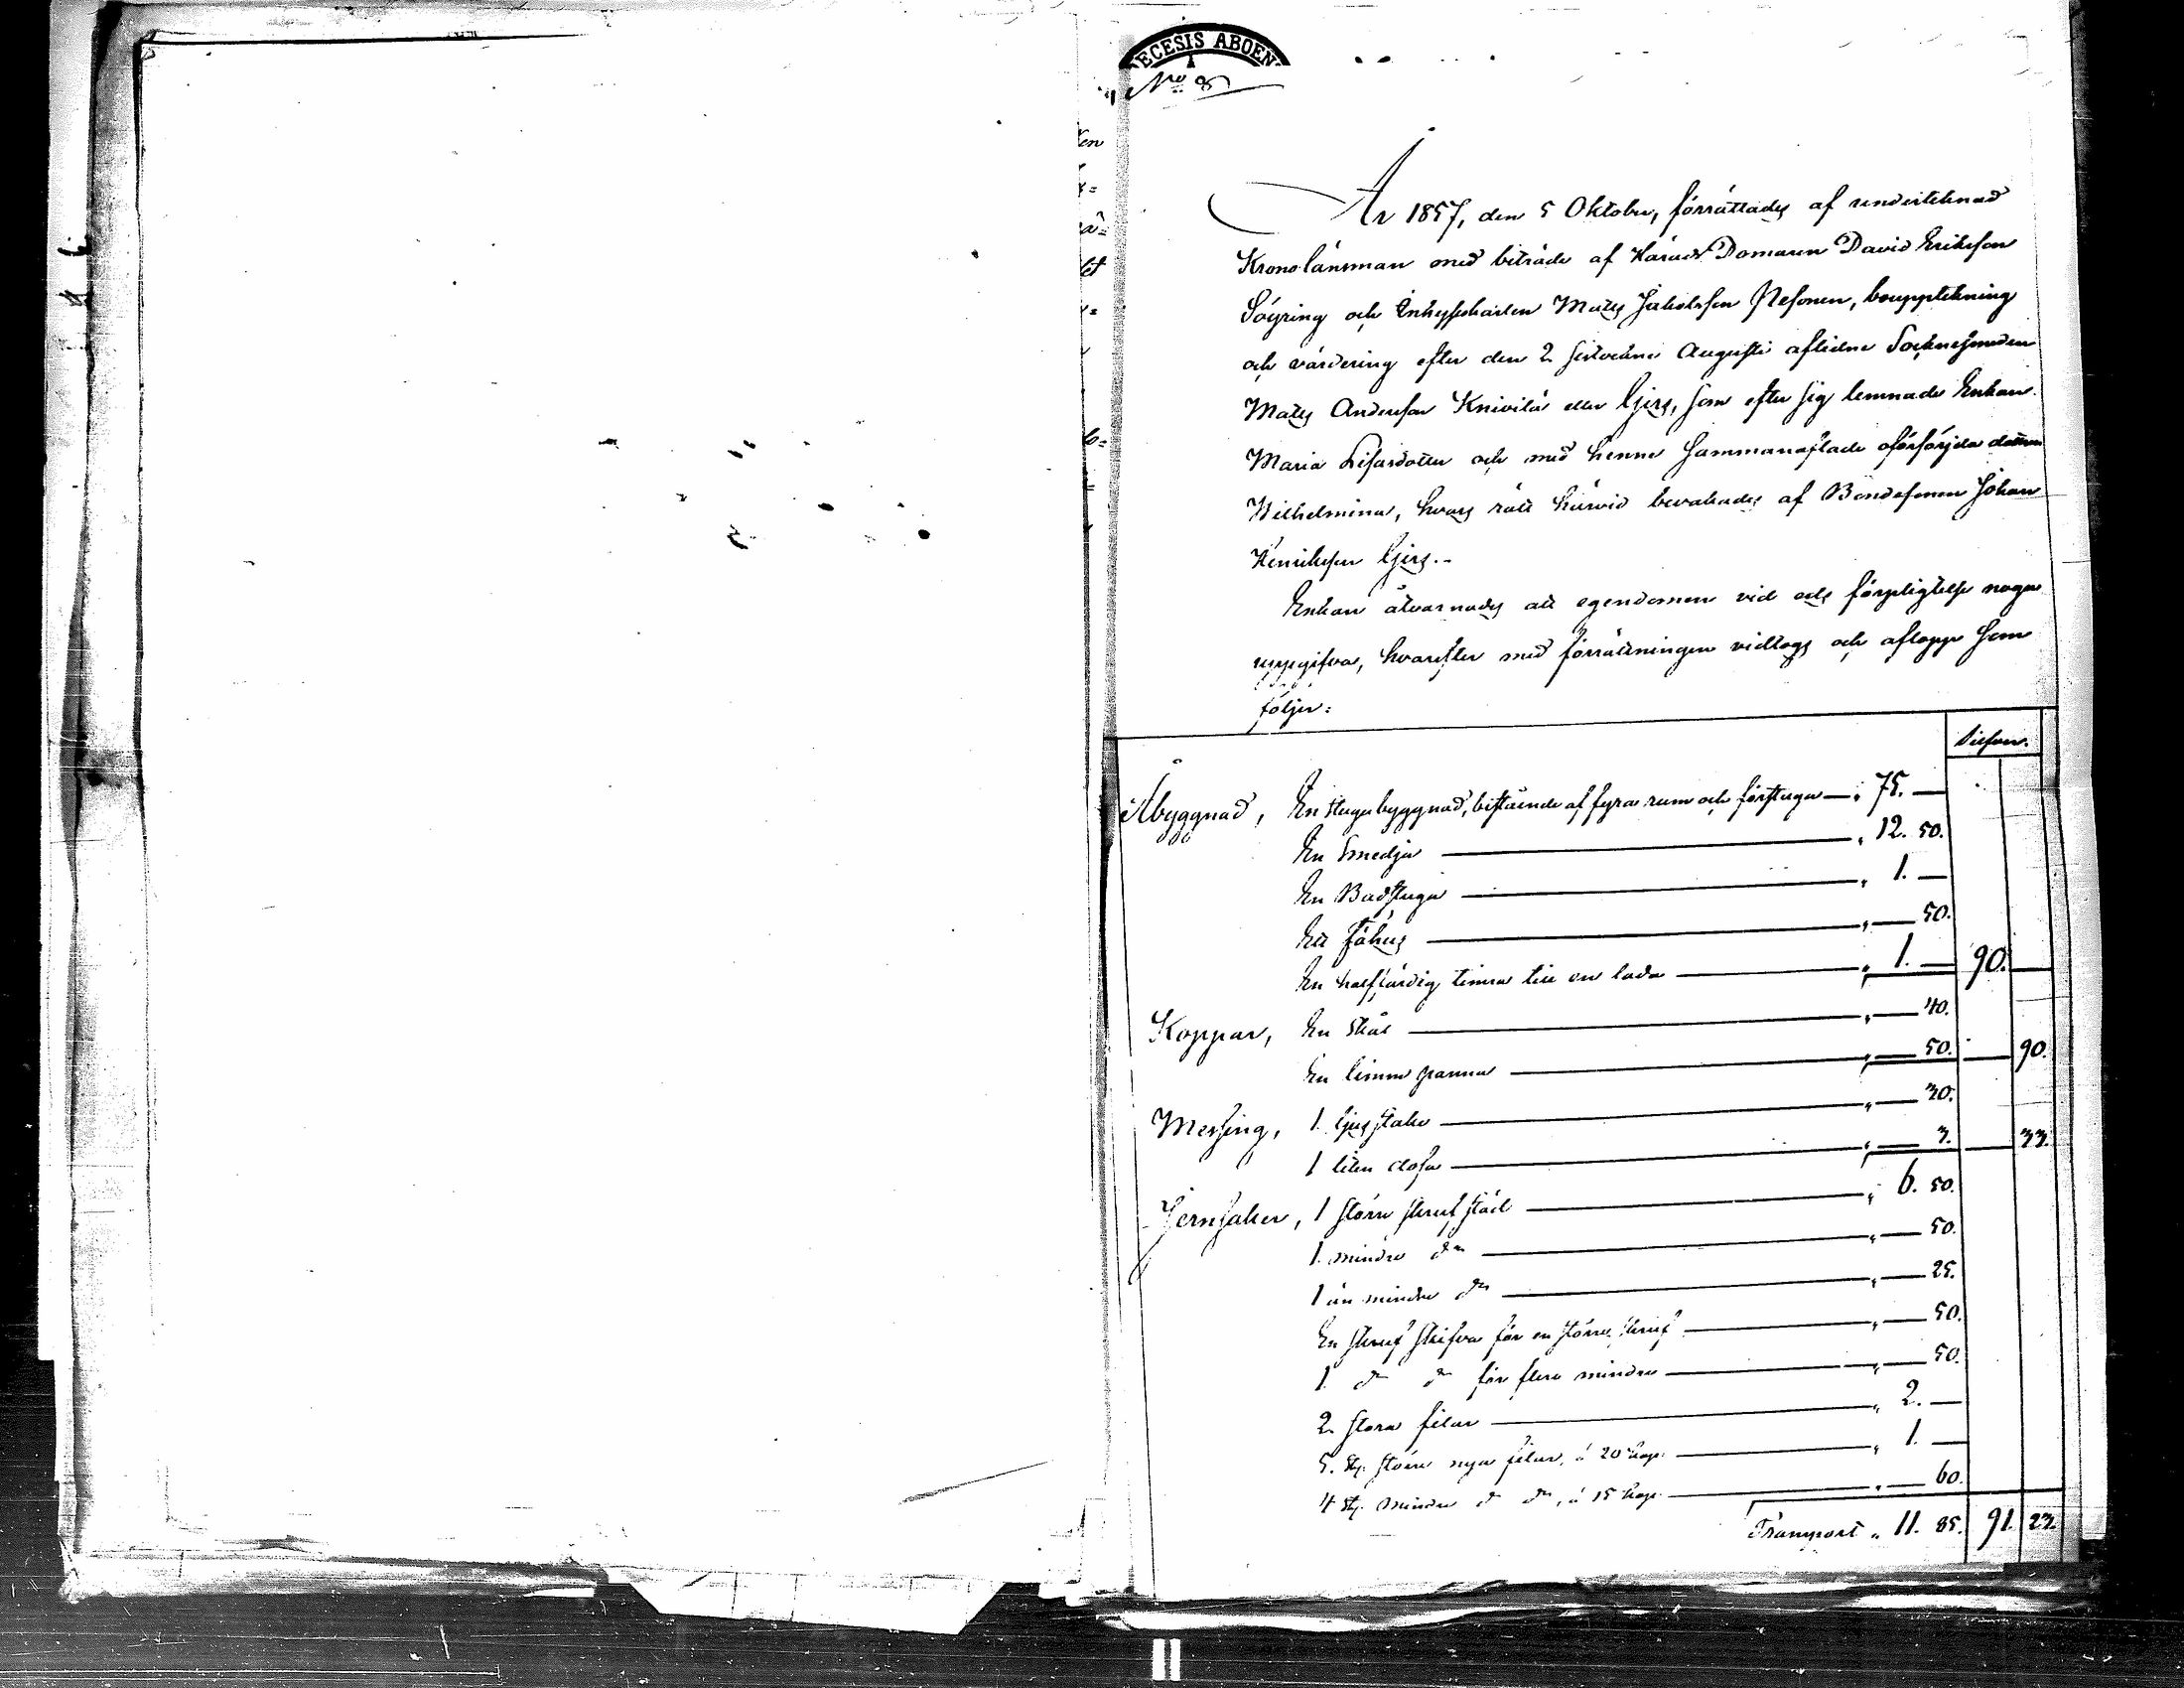 ECESIS ABOEN
No 8
År 1857, den 5 Oktober, förrättades af undertecknad
Kronolänsman med biträde af Härads Domaren David Eriksson
Söyring och Inhysekarlen Mats Jakobsson Nesonen, bouppteckning
och värdering efter den 2 sistvekne Augusti aflidne Socknesmeden
Mats Andersson Knivilä eller Gers, som efter sig lemnade Enkan
Maria Lisasdotter och med henne sammanaflade oförsörjda dottren
Wilhelmina, hvars rätt härvid bevakades af Bondesonen Johan
Henriksson Gers.-
Enkan åtvarnades att egendomen vid eds förpligtelse noga
uppgifva, hvarefter med förrättningen vidtogs och aflopp som
följer:
Silfver.
Åbyggnad, En stugubyggnad, bestående af fyra rum och förstuga — „ 75. —
En Smedja — „ 12. 50.
En Badstuga — „ 1. —
Ett fähus — „ — 50.
En halffärdig timra till en lada — „ 1. — 90. —
Koppar, En skål — „ — 40.
En limm panna — „ — 50. — 90.
Messing, 1 ljusstake — „ — 30.
1 liten dosa — „ — 3. — 33.
Jernsaker, 1 större skrufstäd — „ 6. 50.
1 mindre do — „ — 50.
1 än mindre do — „ — 25.
En skruf skifva för en större skruf — „ — 50.
1 do do för flere mindre — „ — 50.
2 stora filar — „ 2. —
5. st. större nya filar, á 20 kop. — „ 1. —
4 st. mindre do do, á 15 kop. — „ — 60.
Transport „ 11. 85. 91. 23.